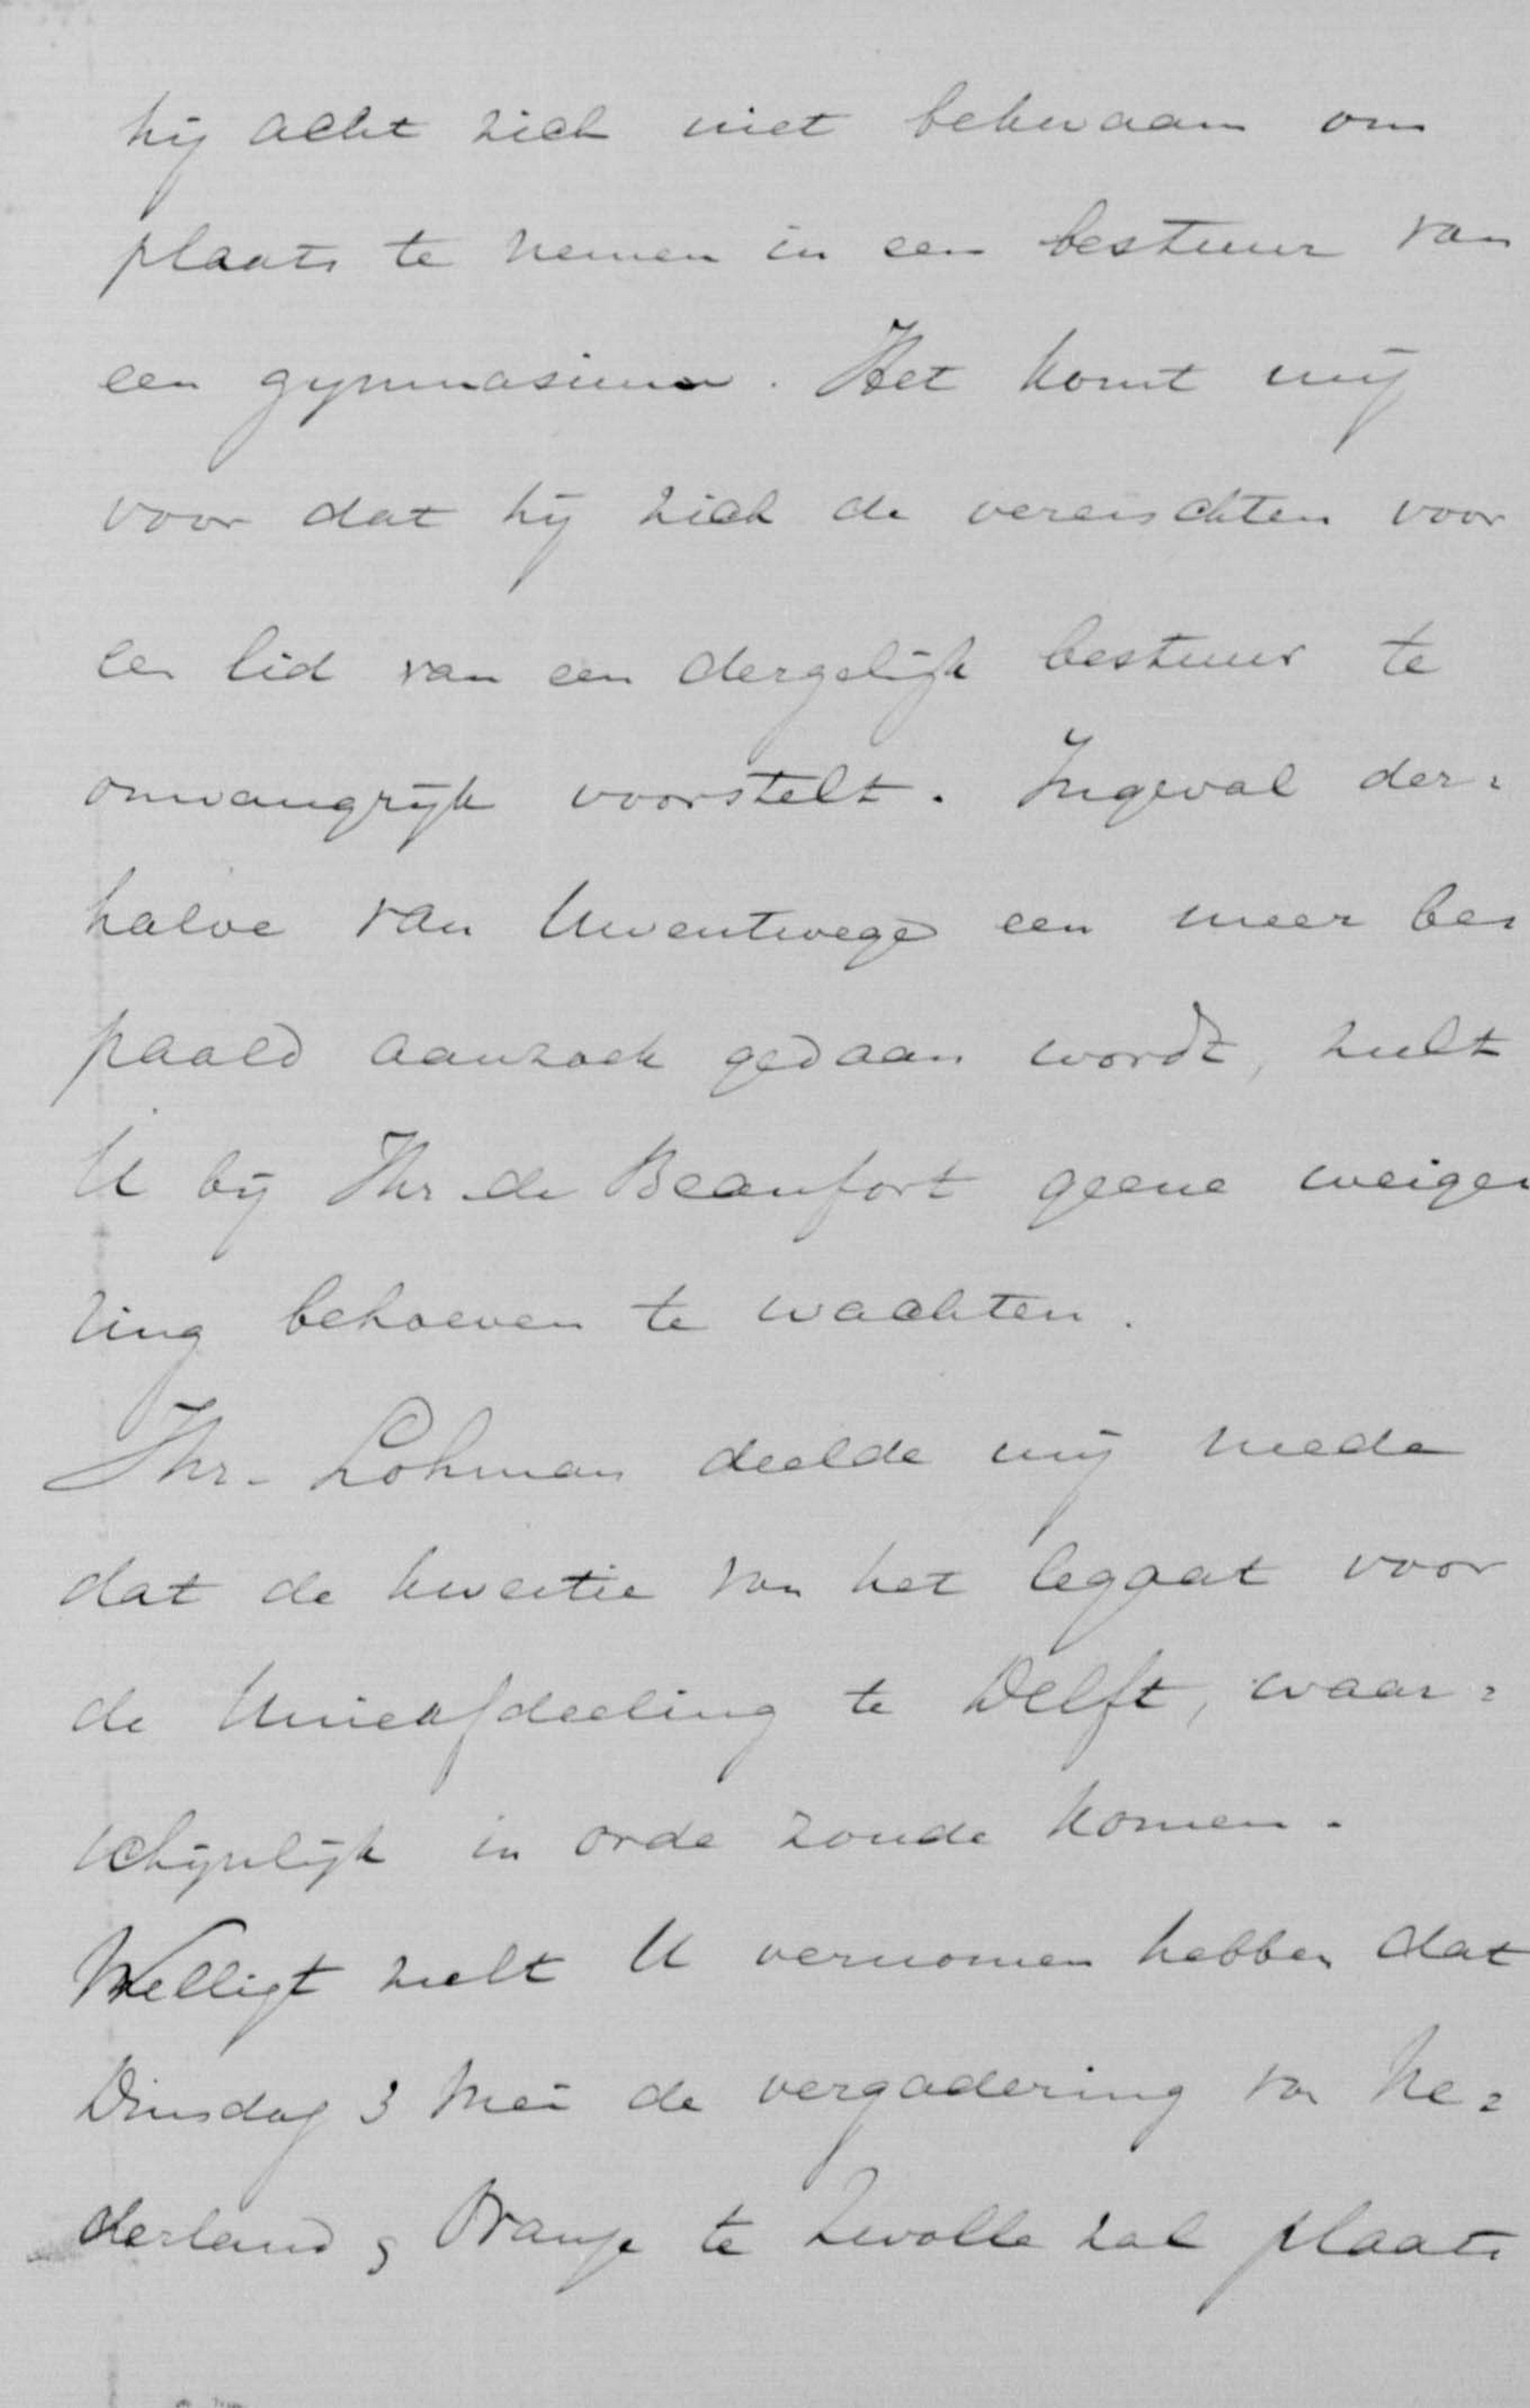 hij acht zich niet bekwaam om
plaats te nemen in een bestuur van
een gymnasium. Het komt mij
voor dat hij zich de vereischten voor
een lid van een dergelijk bestuur te
omvangrijk voorstelt. Ingeval der=
halve van Uwentwege een meer be=
paald aanzoek gedaan wordt, zult
U bij Jhr. de Beaufort geene weige=
ring behoeven te wachten.
Jhr. Lohman deelde mij mede
dat de kwestie van het legaat voor
de Unieafdeeling te Delft, waar=
schijnlijk in orde zoude komen.
Welligt zult U vernomen hebben dat
Dinsdag 3 Mei de vergadering van Ne=
derland & Oranje te Zwolle zal plaats